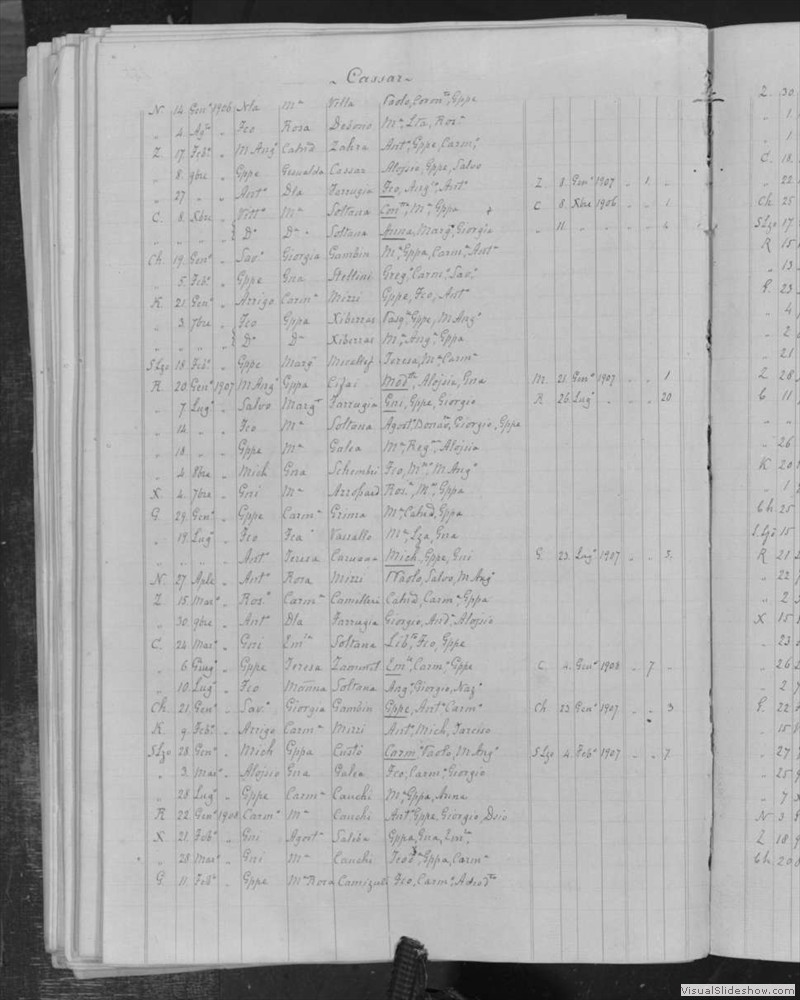 Cassar
N. 14 Genº 1906 Nla Mª Vella Paolo, Coronta, Gppe
" 4 Agto " Fco Rosa Debono Mª, Lza, Rosª
Z. 17 Febº " M Angº Catnd Zahra Antº, Gppe, Carmª
" 8 9bre " Gppe Cassar Aloisio, Gppe, Salvo
" 27 " " Antº Dla Farrugia Fco, Angª, Antª Z. 8. Genº 1907 " 1. "
C. 8. Xbre " Mª Soltana Mª, Gppa C. 8. Xbre 1906 " " 1.
" " " " Dº Dª Soltana Anna, Margª, Giorgia " 11. " " " " 4
Ch. 19. Genº " Savº Giorgia Gambin Mª, Gppa, Carmª, Antª
" 5. Febº " Gppe Gna Stellini Gregº, Carmº, Savº
K. 21. Genº " Arrigo Carmª Mizzi Gppe, Fco, Antº
" 3. 7bre " Fco Gppa Xiberras Pasqª, Gppe, M Angº
" " " " Dº Dª Xiberras Mª, Angª, Gppa
S Lzo 18. Febº " Gppe Margª Micallef Teresa, Mª Carmª
R. 20. Genº 1907 M Angº Gppa Modta, Aloisia, Gna M. 21. Genº 1907 " " 1
" 7 Lugº " Salvo Margª Farrugia Gni, Gppe, Giorgio R. 26. Lugº " " " 20
" 14. " " Fco Mª Soltana Agostº, Giorgio, Gppe
" 18. " " Gppe Mª Galea Mª, Regª, Aloisia
" 4 8bre " Mich Gna Schembri Fco, Mª, M Angº
X. 4. 7bre " Gni Mª Azzopard Rosª, Mª, Gppa
G. 29. Genº " Gppe Carmª Grima Mª, Catnd, Gppa
" 19. Lugº " Fco Fca Vassallo Mª, Lza, Gna
" " " " Antº Teresa Caruana Mich, Gppe, Gni G. 23. Lugº 1907 " " 3.
N. 27. Aple " Antº Rosa Mizzi Paolo, Salvo, M Angº
Z. 15. Marº " Rosº Carmª Camilleri Catnd, Carmª, Gppa
" 30. 9bre " Antº Dla Farrugia Giorgio, Andª, Aloisio
C. 24. Marº " Gni Emla Soltana Libta, Fco, Gppe
" 6 Giugº " Gppe Teresa Zammit Emlª, Carmª, Gppe C. 4. Genº 1908 " 7. "
" 10. Lugº " Fco Soltana Angº, Giorgio, Nazº
Ch. 21. Genº " Savº Giorgia Gambin Gppe, Antº, Carmº Ch 23. Genº 1907 " " 3
K. 9. Febº " Arrigo Carmª Mizzi Antº, Mich, Tarciso
S Lzo 28. Genº " Mich Gppa Carmº, Paolo, M Angº S Lzo 4. Febº 1907 " " 7.
" 3. Marº " Aloisio Gna Galea Fco, Carmº, Giorgio
" 28. Lugº " Gppe Carmª Cauchi Mª, Gppa, Anna
R. 22. Genº 1908 Carmº Mª Cauchi Antº, Gppe, Giorgio
X. 21. Febº " Gni Agostª Saliba Gppa, Gna, Emla
" 28. Marº " Gni Mª Cauchi Gppa, Carmª
G. 11. Febº " Gppe Mª Rosa Camizuli Fco, Carmº
Z. 30
" 1
" 1
C. 18
" 22
Ch. 25
S Lzo 17
R 15
" 13
G. 23
" 4
" 2
" 21
Z 28
C 11
" "
" 26
K 20
" 1
Ch. 25
S. Lzo 15
R 21
" 22
" 2
X 15
" 23
" 26
" 2
G. 22
" 15
" 27
" 25
" 7
N 3
Z 18
Ch. 20
VisualSlideshow.com